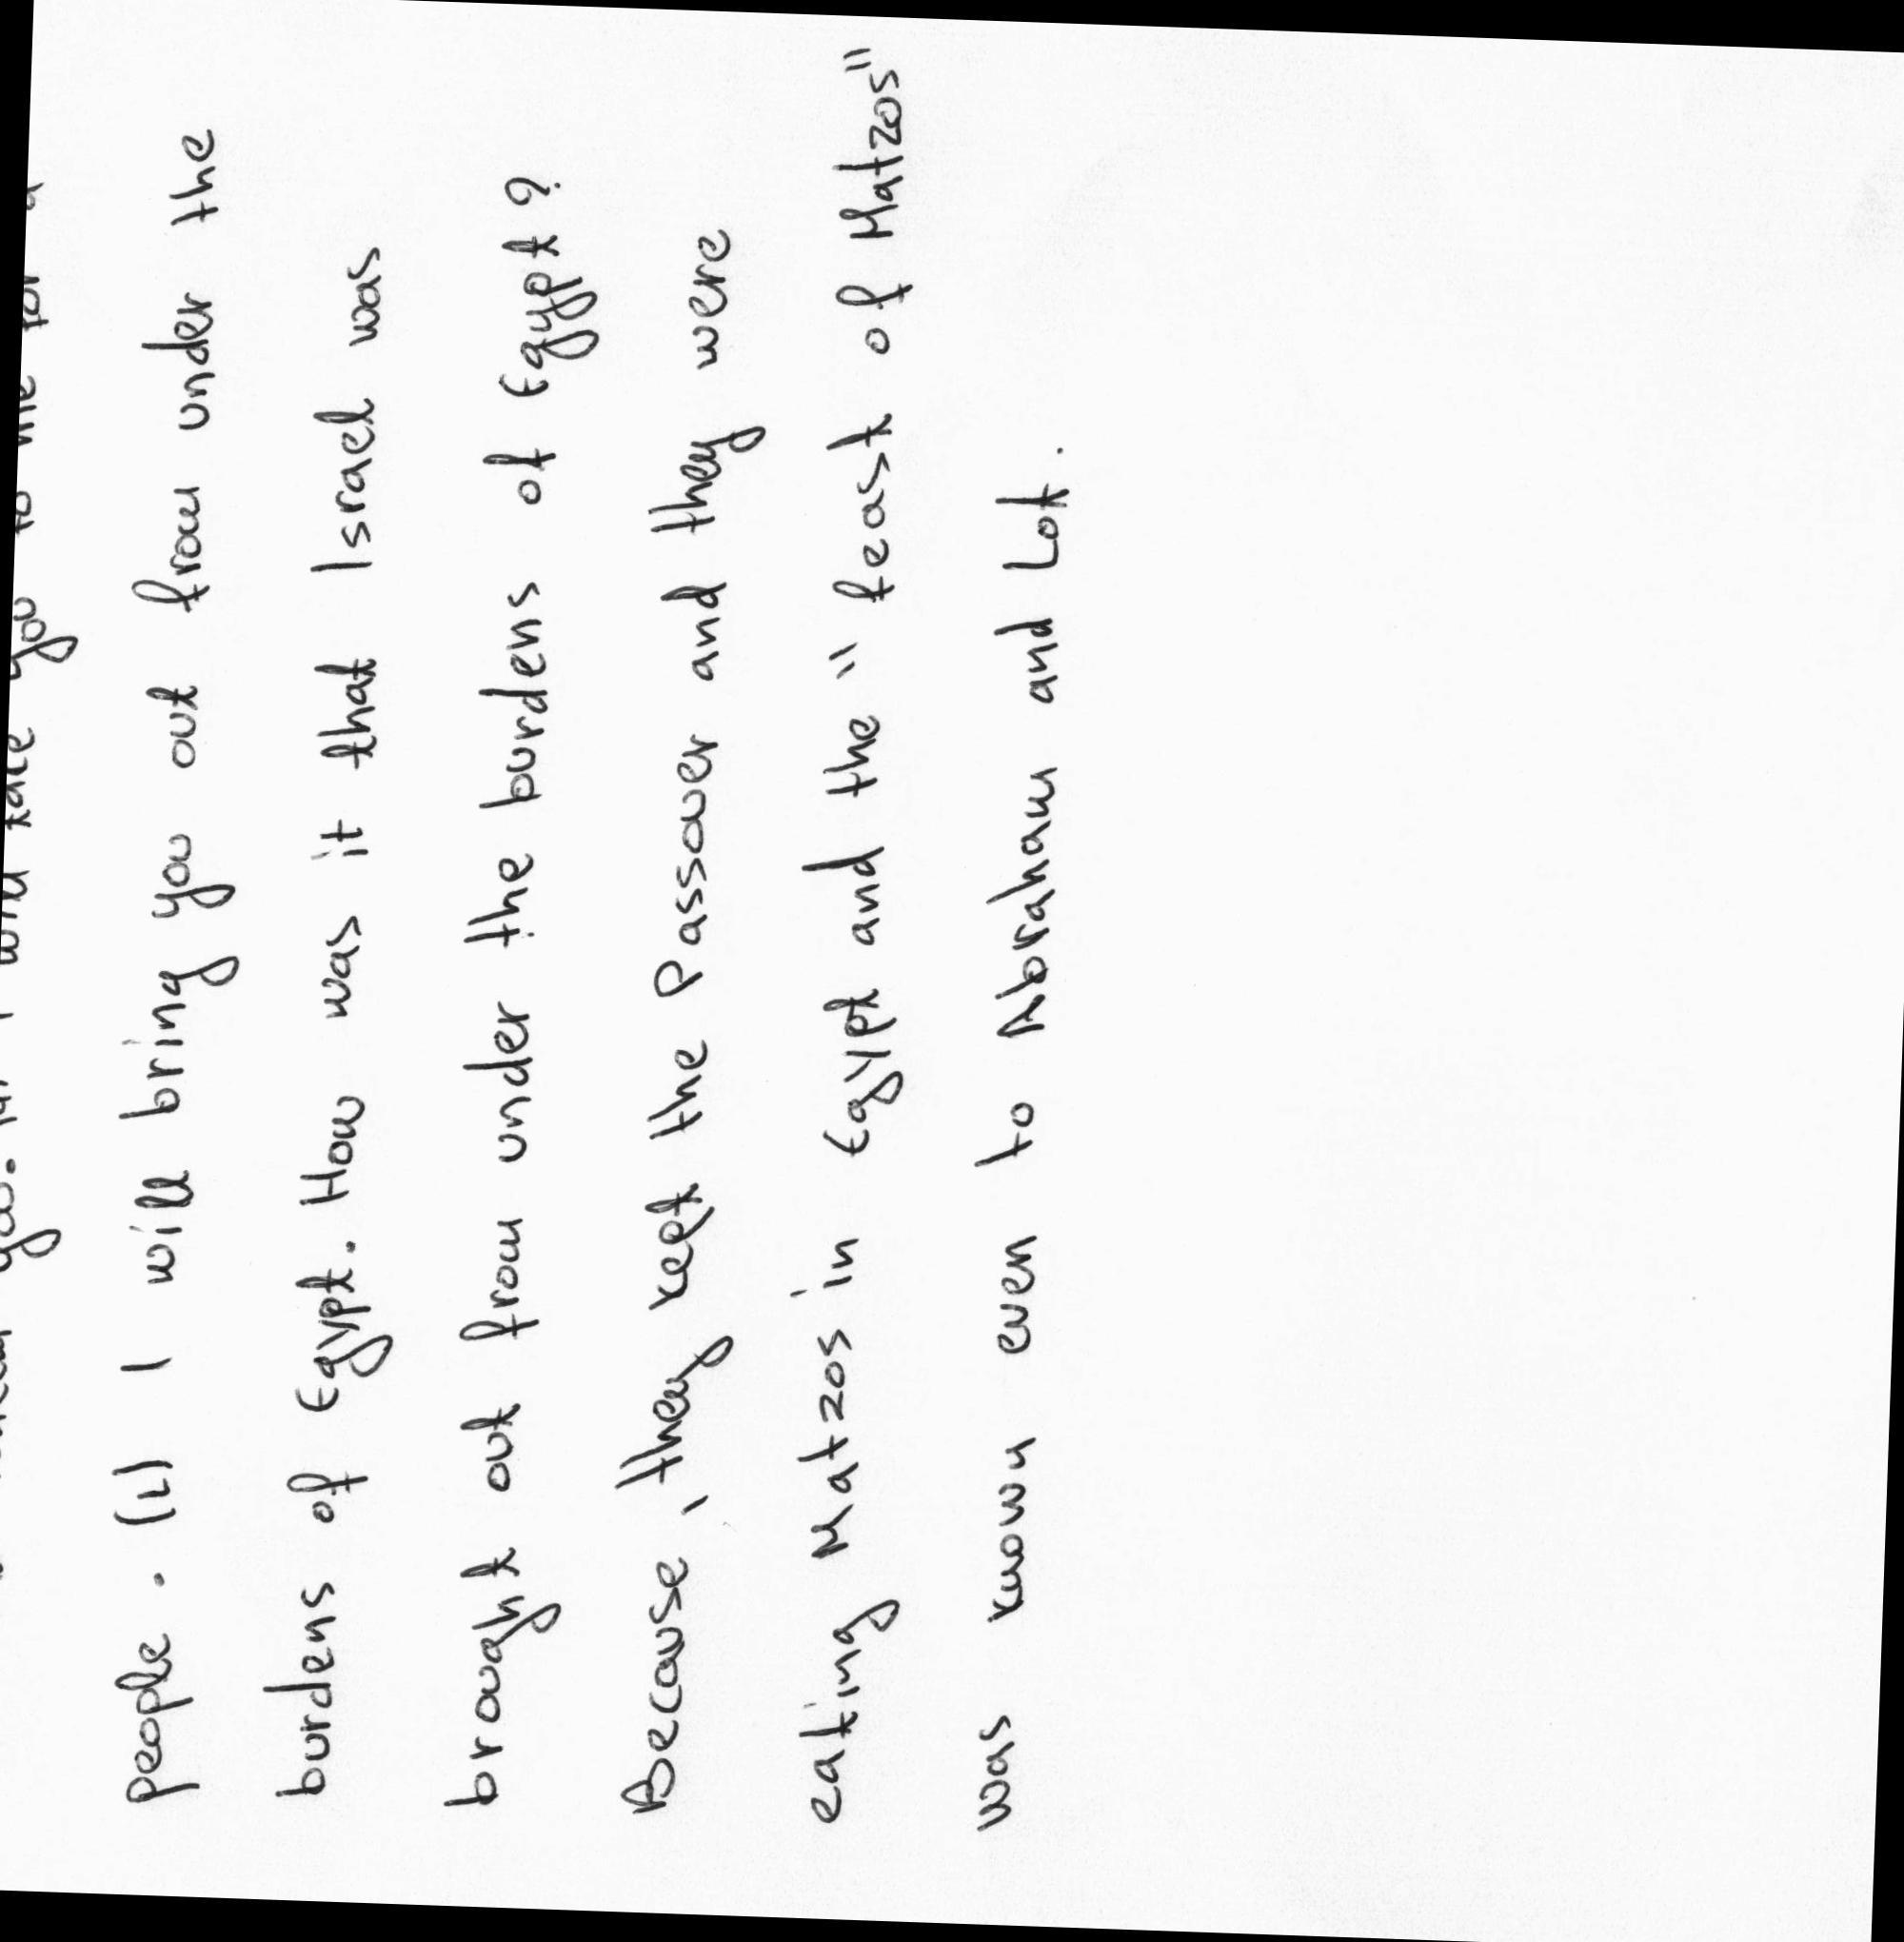 you to me for a
people. (1) I will bring you out from under the
burdens of Egypt. How was it that Israel was
brought out from under the burdens of Egypt?
Because, they kept the Passover and they were
eating Matzos in Egypt and the "feast of Matzos"
was known even to Abraham and Lot.